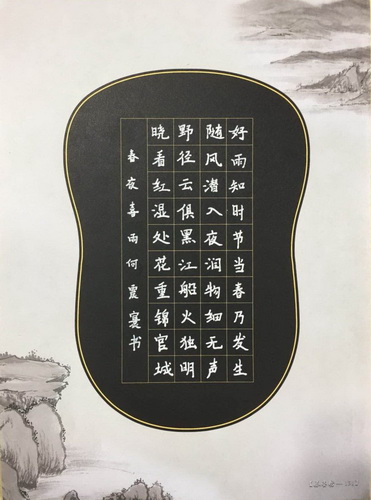 好雨知时节当春乃发生
随风潜入夜润物细无声
野径云俱黑江船火独明
晓看红湿处花重锦官城
春夜喜雨何霞书